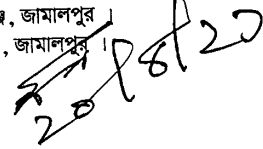 , জামালপুর ।
, জামালপুর ।
20/8/20